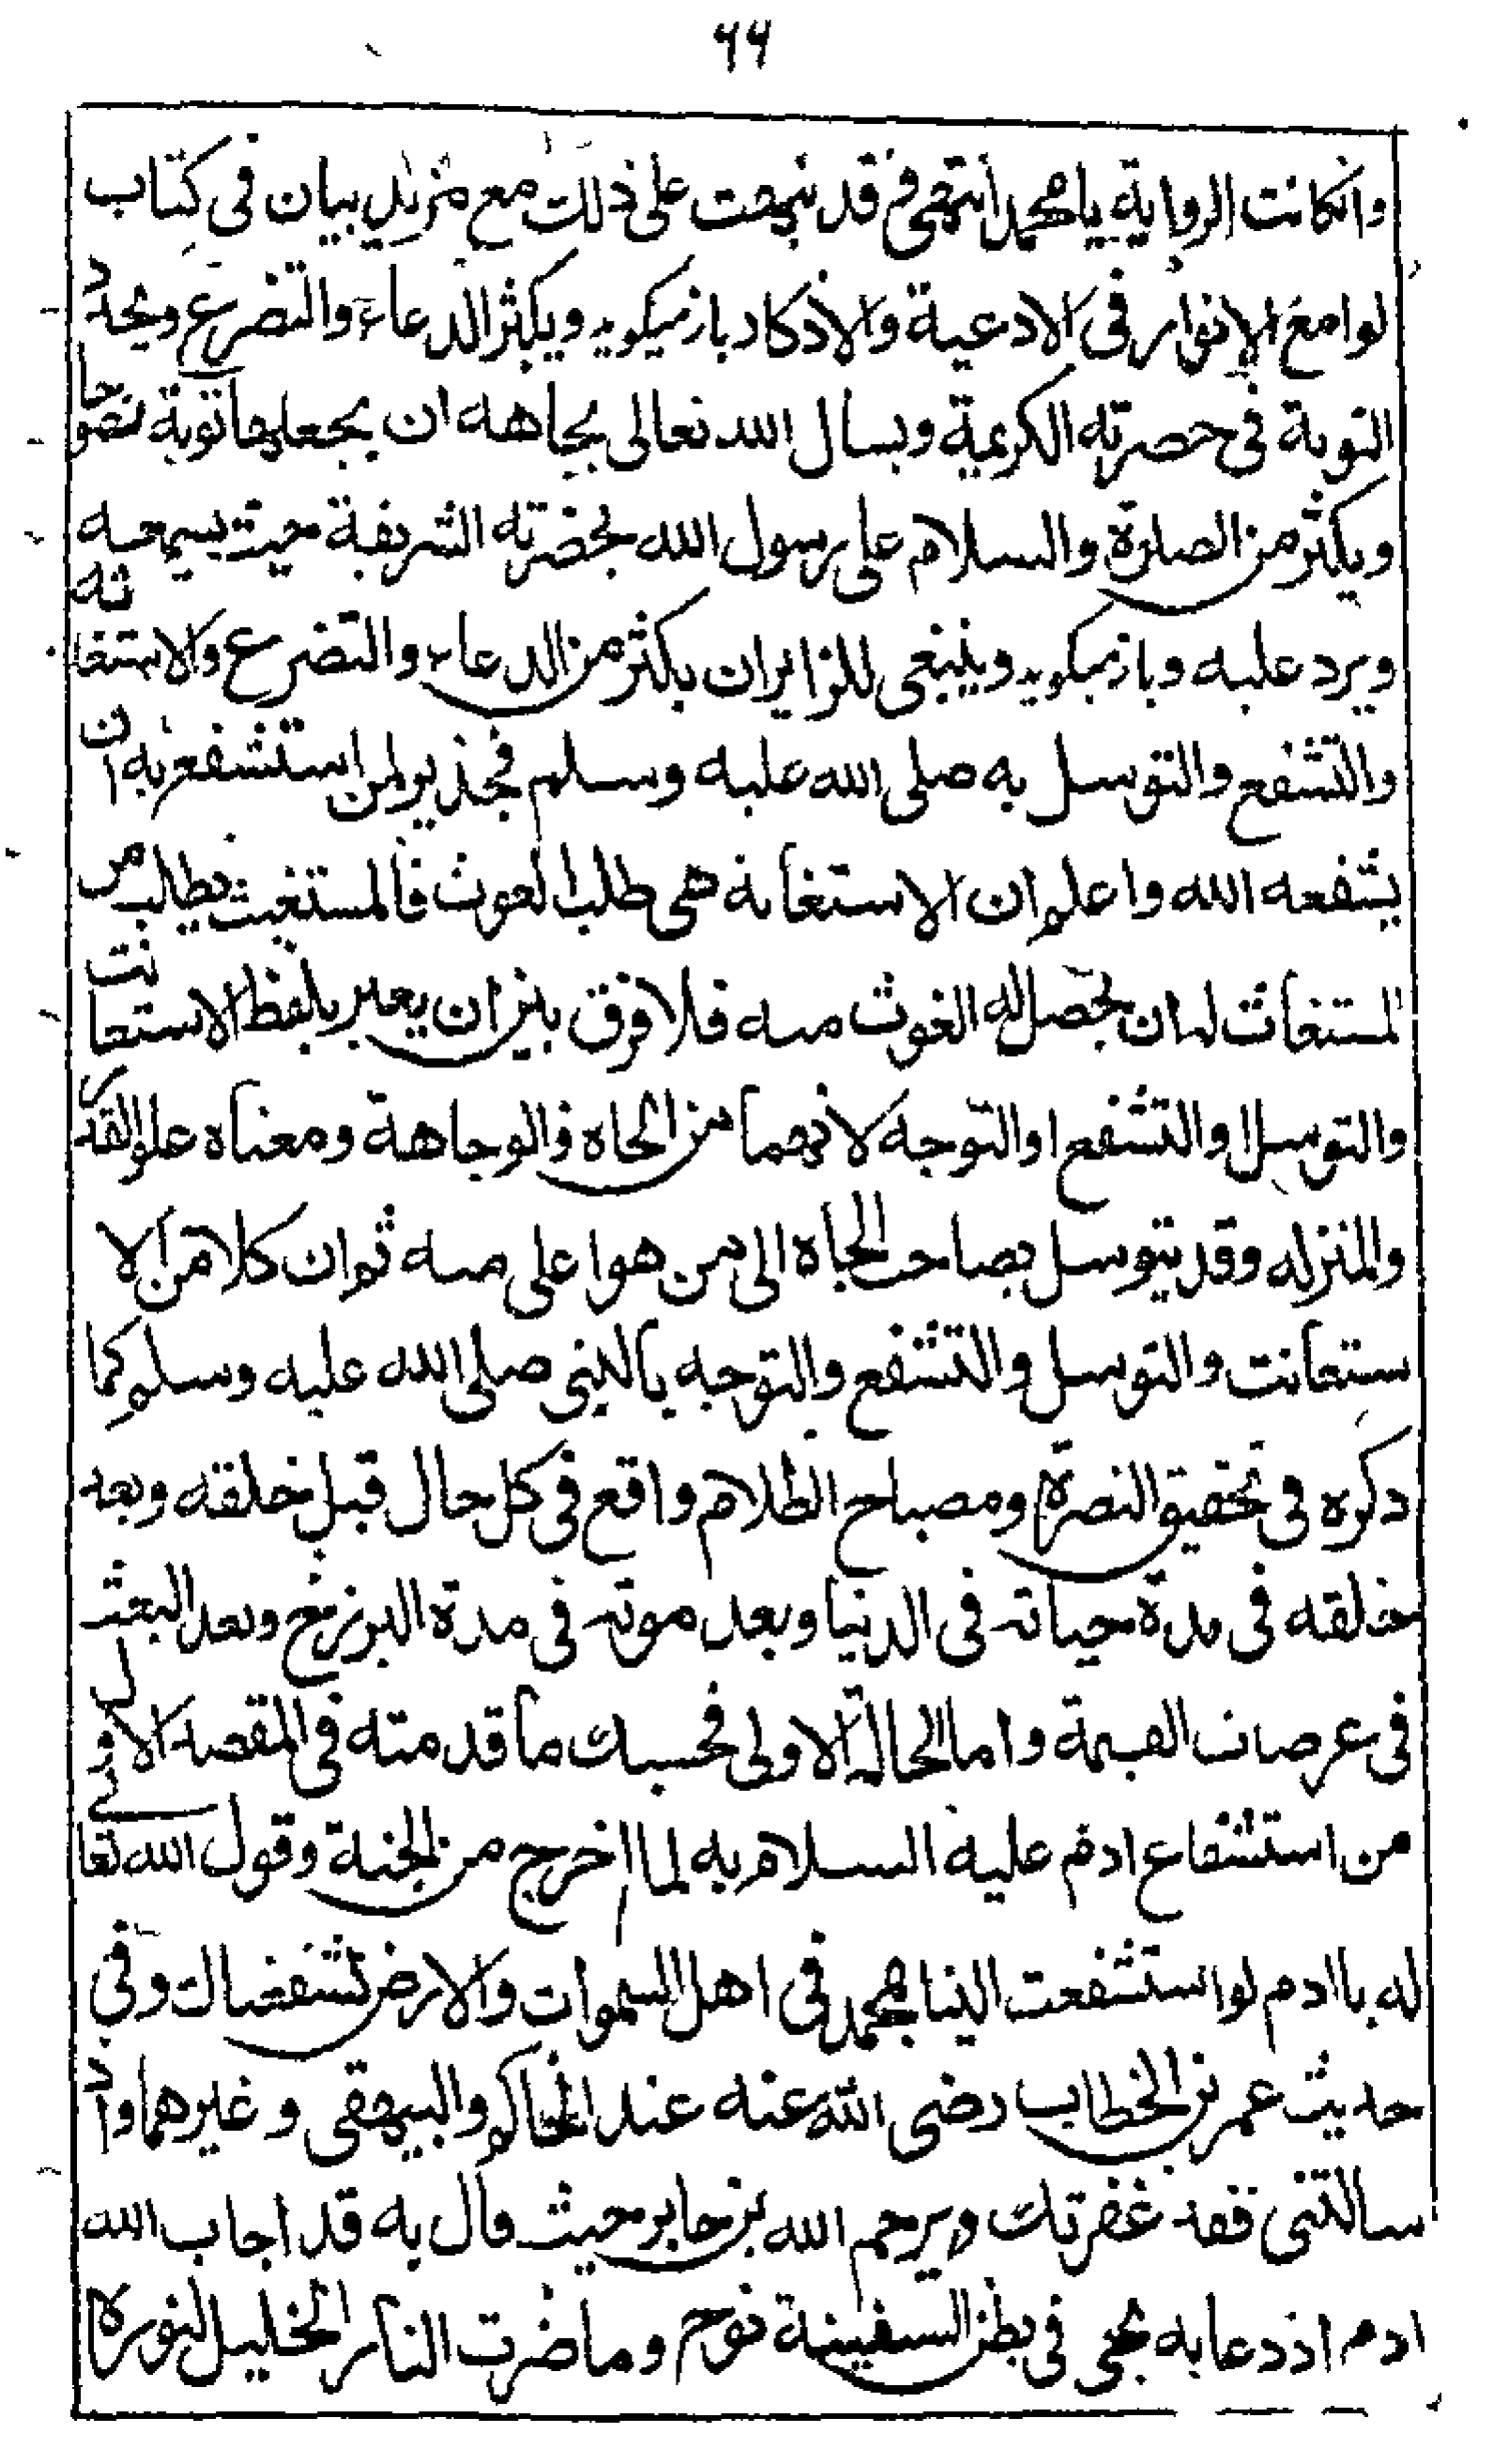 ۶۶
وانكانت الرواية يا محمد انتهى قد نبهت على ذلك مع مزيد بيان فى كتاب
لوامع الانوار فى الادعية والاذكار باز ميكويد ويكثر الدعاء والتضرع ويجدد
التوبة فى حضرته الكريمة ويسال الله تعالى بجاهه ان يجعلها توبة نصوحا
ويكثر من الصلوة والسلام على رسول الله بحضرته الشريفة حيث يسمعه
ويرد عليه وباز ميكويد وينبغى للزايران يكثر من الدعاء والتضرع والاستغاثه
والتشفع والتوسل به صلى الله عليه وسلم فجدير لمن استشفع به ان
يشفعه الله واعلم ان الاستغاثة هى طلب الغوث فالمستغيث يطلب من
المستغاث لمان يحصل له الغوث منه فلا فرق بين ان يعبر بلفظ الاستعانت
والتوسل او التشفع او التوجه لانهما من الجاه والوجاهة ومعناه علو القدر
والمنزله وقد يتوسل بصاحب الجاه الى من هو اعلى منه ثم ان كلا من الا
ستعانت والتوسل والتشفع والتوجه بالنبى صلى الله عليه وسلم كما
ذكره فى تحقيق النصرة ومصباح الظلام واقع فى كل حال قبل خلقه وبعد
خلقه فى مدة حياته فى الدنيا وبعد موته فى مدة البرزخ وبعد البعث
فى عرصات القيمة واما الحالة الاولى فحسبك ما قدمته فى المقصد الاول
من استشفاع ادم عليه السلام به لما اخرج من الجنة وقول الله تعالى
له يا ادم لو استشفعت الينا بمحمد فى اهل السموات والارض لشفعناك وفى
حديث عمر بن الخطاب رضى الله عنه عند الحاكم والبيهقى وغيرهما واذ
سالتنى فقد غفرتك ويرحم الله بن جابر حيث قال به قد اجاب الله
ادم اذ دعا به نجى فى بطن السفينة نوح وما ضرت النار الخليل لنوره